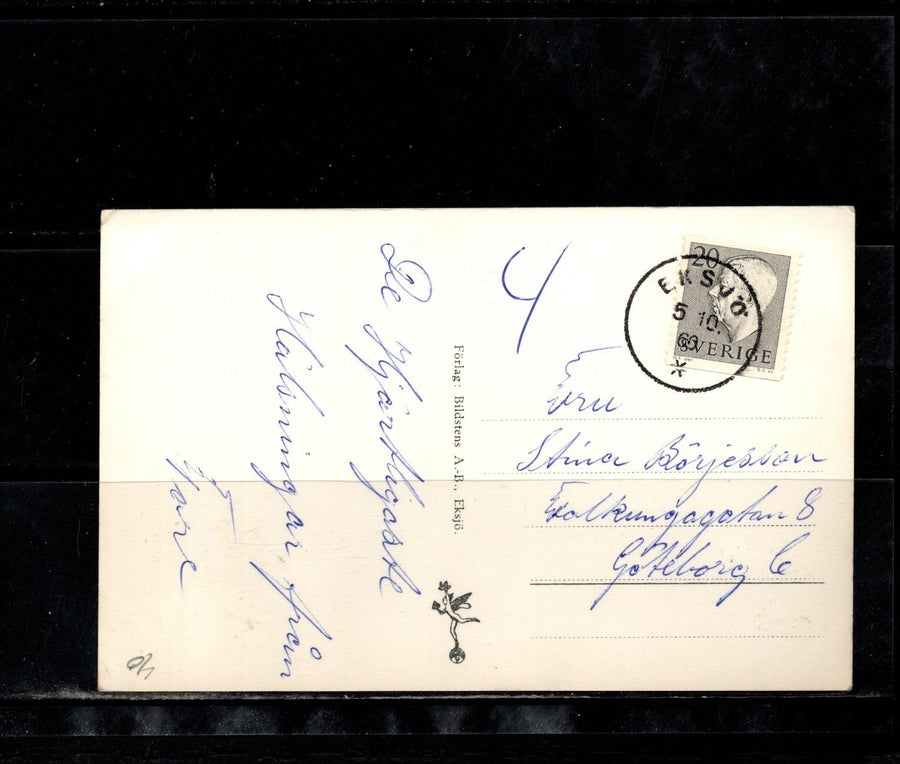 De Hjärtligaste
Hälsningar från
Tore
Förlag: Bildstens A.-B., Eksjö.
4
20
SVERIGE
EKSJÖ
5 10.
60
Fru
Stina Börjesson
Folkungagatan 8
Göteborg C